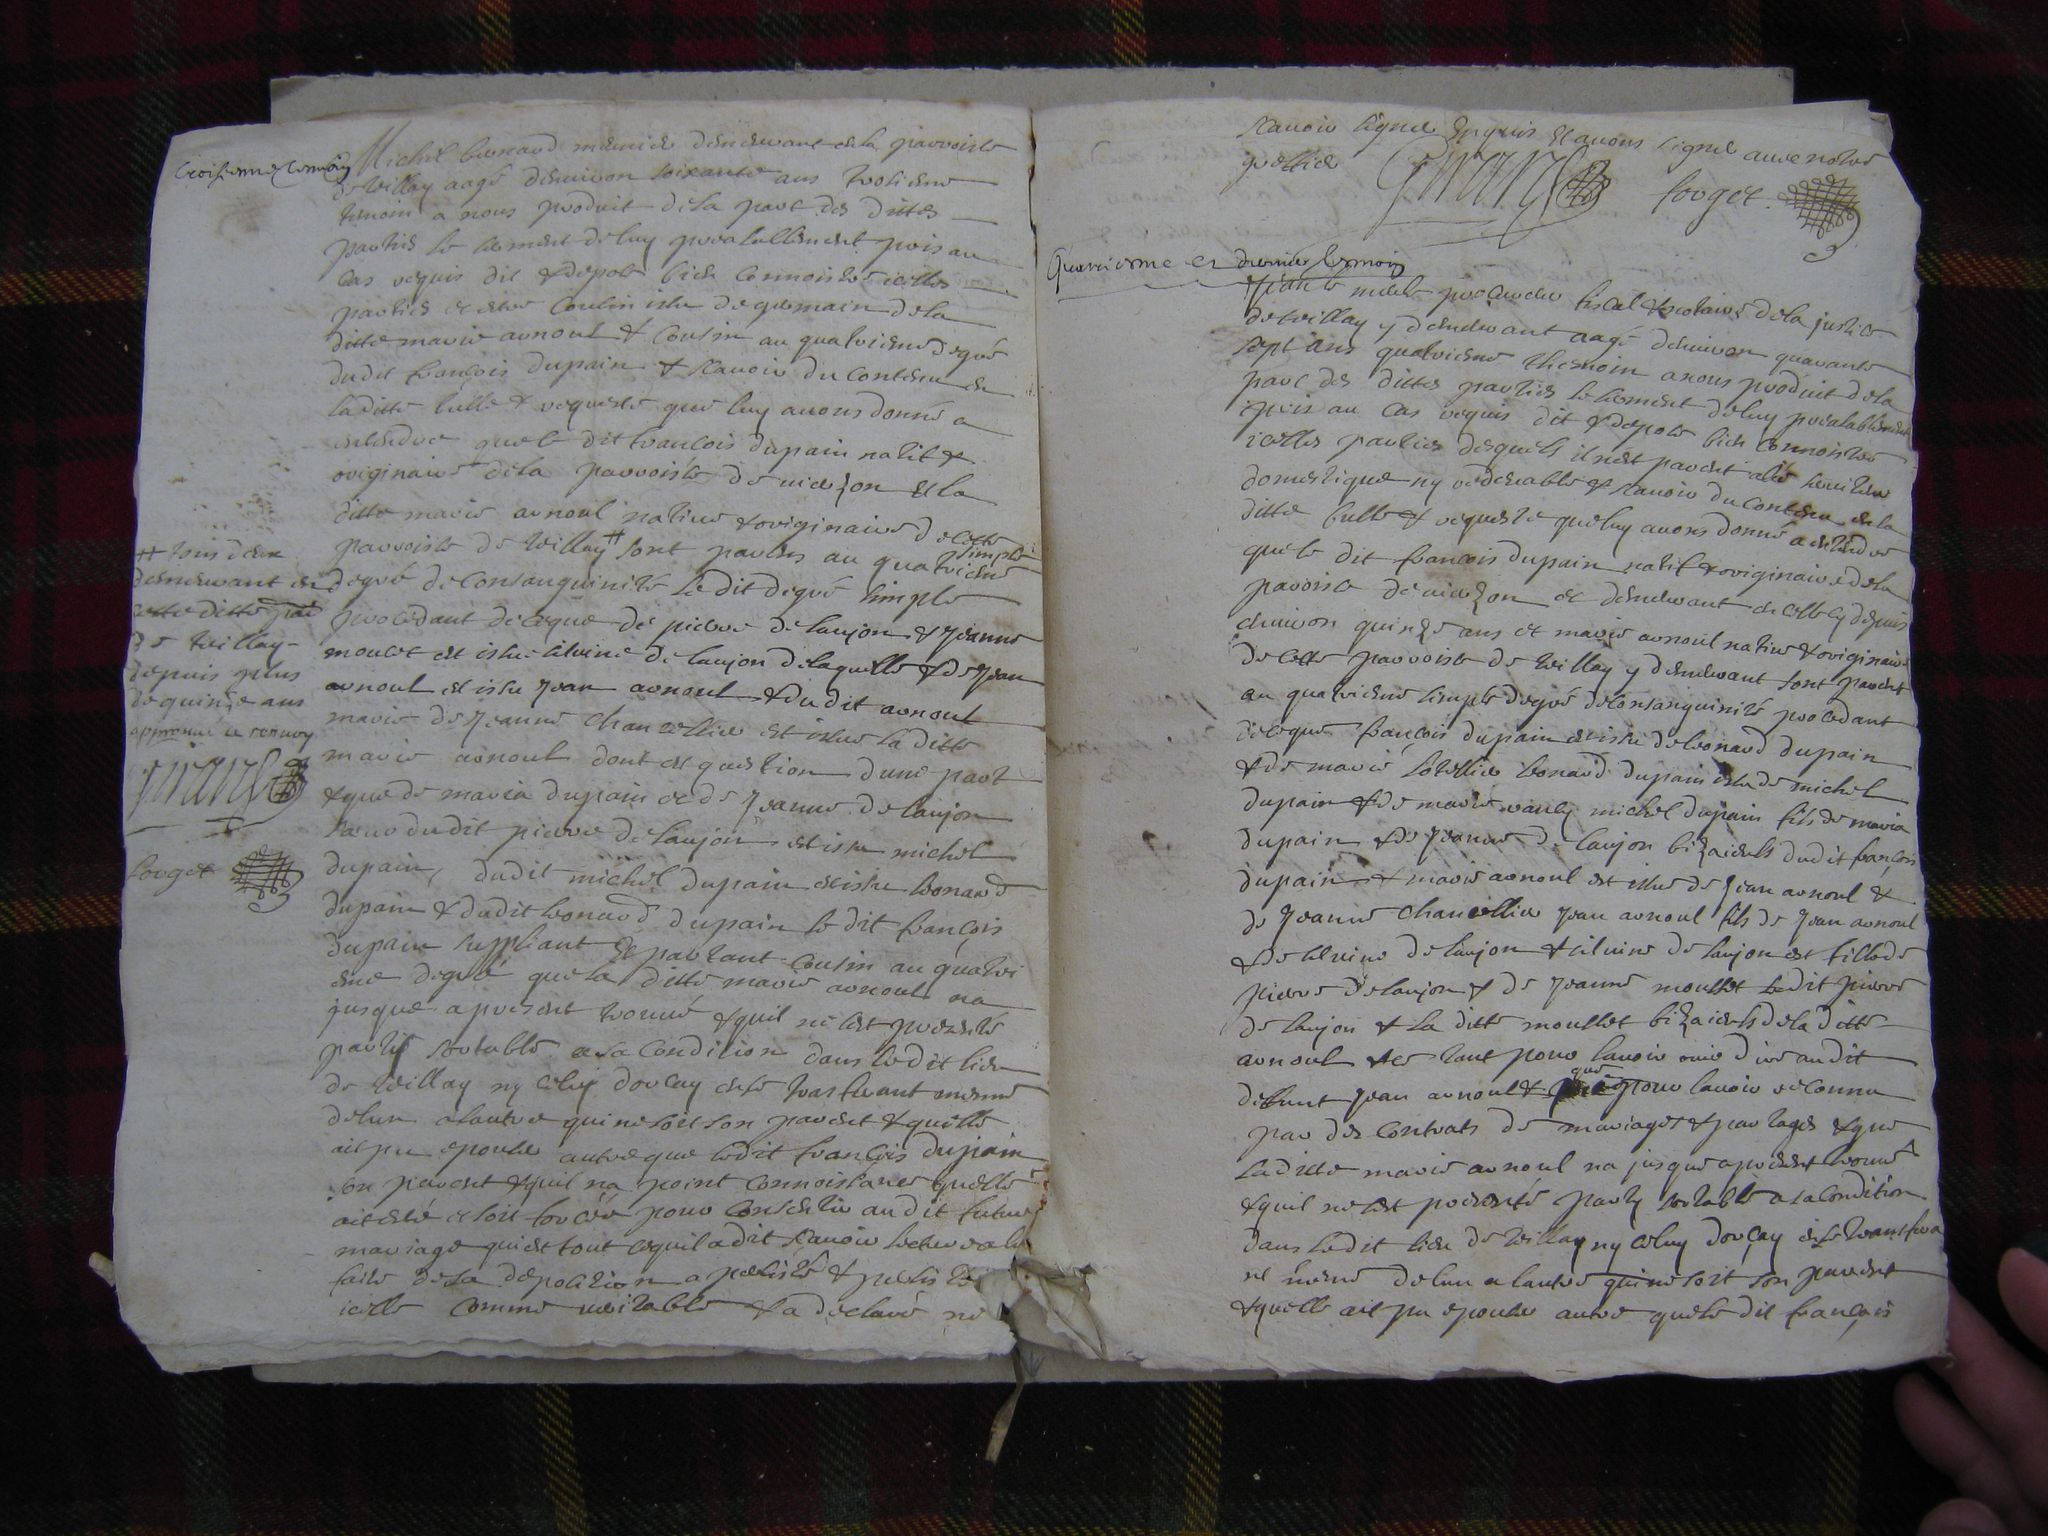 troisiesme tesmoin
Michel bernard meunier demeurant en la parroisse
de Trillay aagé denviron soixante ans troisieme
temoin a nous produit de la part des dittes
parties le serment de luy prealablement pris au
cas requis dit et depose bien connoistre icelles
parties et estre cousin issu de germain de la
ditte marie arnoul & cousin au quatrieme degré
dudit françois dupain & scavoir du contenu en
laditte bulle & requeste que luy avons donné a
entendre que le dit françois dupain natif &
originaire de la parroisse de vierzon et la
ditte marie arnoul native & originaire de cette
parroisse de Trillay # sont parens au quatrieme simple
degré de consanguinité le dit degré simple
procedant de ce que de pierre de laujon & Jeanne
moulet est issue silvine de laujon de laquelle & de Jean
arnoul est issu Jean arnoul & du dit arnoul
marié de Jeanne chancellier est issue la ditte
marie arnoul dont est question d'une part
& que de maria dupain et de Jeanne de laujon
soeur dudit pierre de laujon est issu michel
dupain, dudit michel dupain est issu leonard
dupain & dudit leonard dupain le dit françois
dupain suppliant et partant cousin au quatri
eme degré que la ditte marie arnoul na
jusque a present trouvé & quil ne sest presenté
party sortable a sa condition dans ledit lieu
de Trillay ny celuy dorcay en se transferant mesme
de lun a lautre qui ne soit son parent & quelle
ait pu epouser autre que ledit françois dupain
son parent & quil na point connoissance quelle
ait esté et soit forcée pour consentir au dit futur
mariage qui est tout ce quil a dit scavoir lecture a luy
faite de sa deposition a persisté & persiste
icelle comme veritable & a declaré ne
# tous deux
demeurant en
cette ditte par
de Trillay
depuis plus
de quinze ans
approuvé le renvoy
fouget
scavoir signer enquis et avons signé avec notre
greffier
fouget
Quatriesme et dernier tesmoin
procureur fiscal & notaire de la justice
de Trillay y demeurant aagé denviron quarante
sept ans quatrieme themoin a nous produit de la
part des dittes parties le serment de luy prealablement
pris au cas requis dit & depose bien connoistre
icelles parties desquels il nest parent alié serviteur
domestique ny redevable & scavoir du contenu en la
ditte bulle & requeste que luy avons donné a entendre
que le dit francois dupain natif & originaire de la
paroisse de vierzon et demeurant en celle cy depuis
environ quinze ans et marie arnoul native & originaire
de cette parroisse de Trillay y demeurant sont parent
au quatrieme simple degré de consanguinité procedant
de ce que françois dupain est issu de leonard dupain
& de marie leonard dupain issu de michel
dupain & de marie michel dupain fils de maria
dupain & de Jeanne de laujon bizaieuls dudit françois
dupain & marie arnoul est issue de Jean arnoul &
de Jeanne chancellier Jean arnoul fils de Jean arnoul
& de silvine de laujon & silvine de laujon est fille de
pierre de laujon & de Jeanne moullet ledit pierre
de laujon & la ditte moullet bizaieuls de la ditte
arnoul & ce tant pour lavoir ouir dire audit
defunt Jean arnoul & que pour lavoir reconnu
par des contrats de mariage & partages & que
laditte marie arnoul na jusque a present trouvé
& quil ne sest presenté party sortable a sa condition
dans ledit lieu de Trillay ny celuy dorçay en se transfera
nt mesme de lun a lautre qui ne soit son parent
& quelle ait pu epouser autre que le dit françois